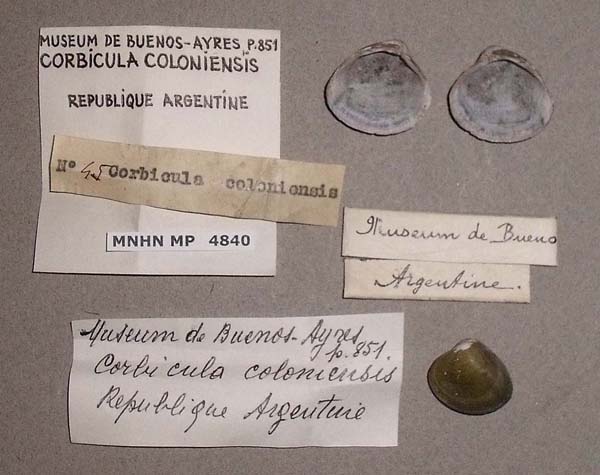 MUSEUM DE BUENOS-AYRES P.851
CORBICULA COLONIENSIS
REPUBLIQUE ARGENTINE
N° 45 Corbicula coloniensis
MNHN MP 4840
Museum de Bueno
Argentine.
Museum de Buenos-Ayres
p.851.
Corbicula coloniensis
Republique Argentine